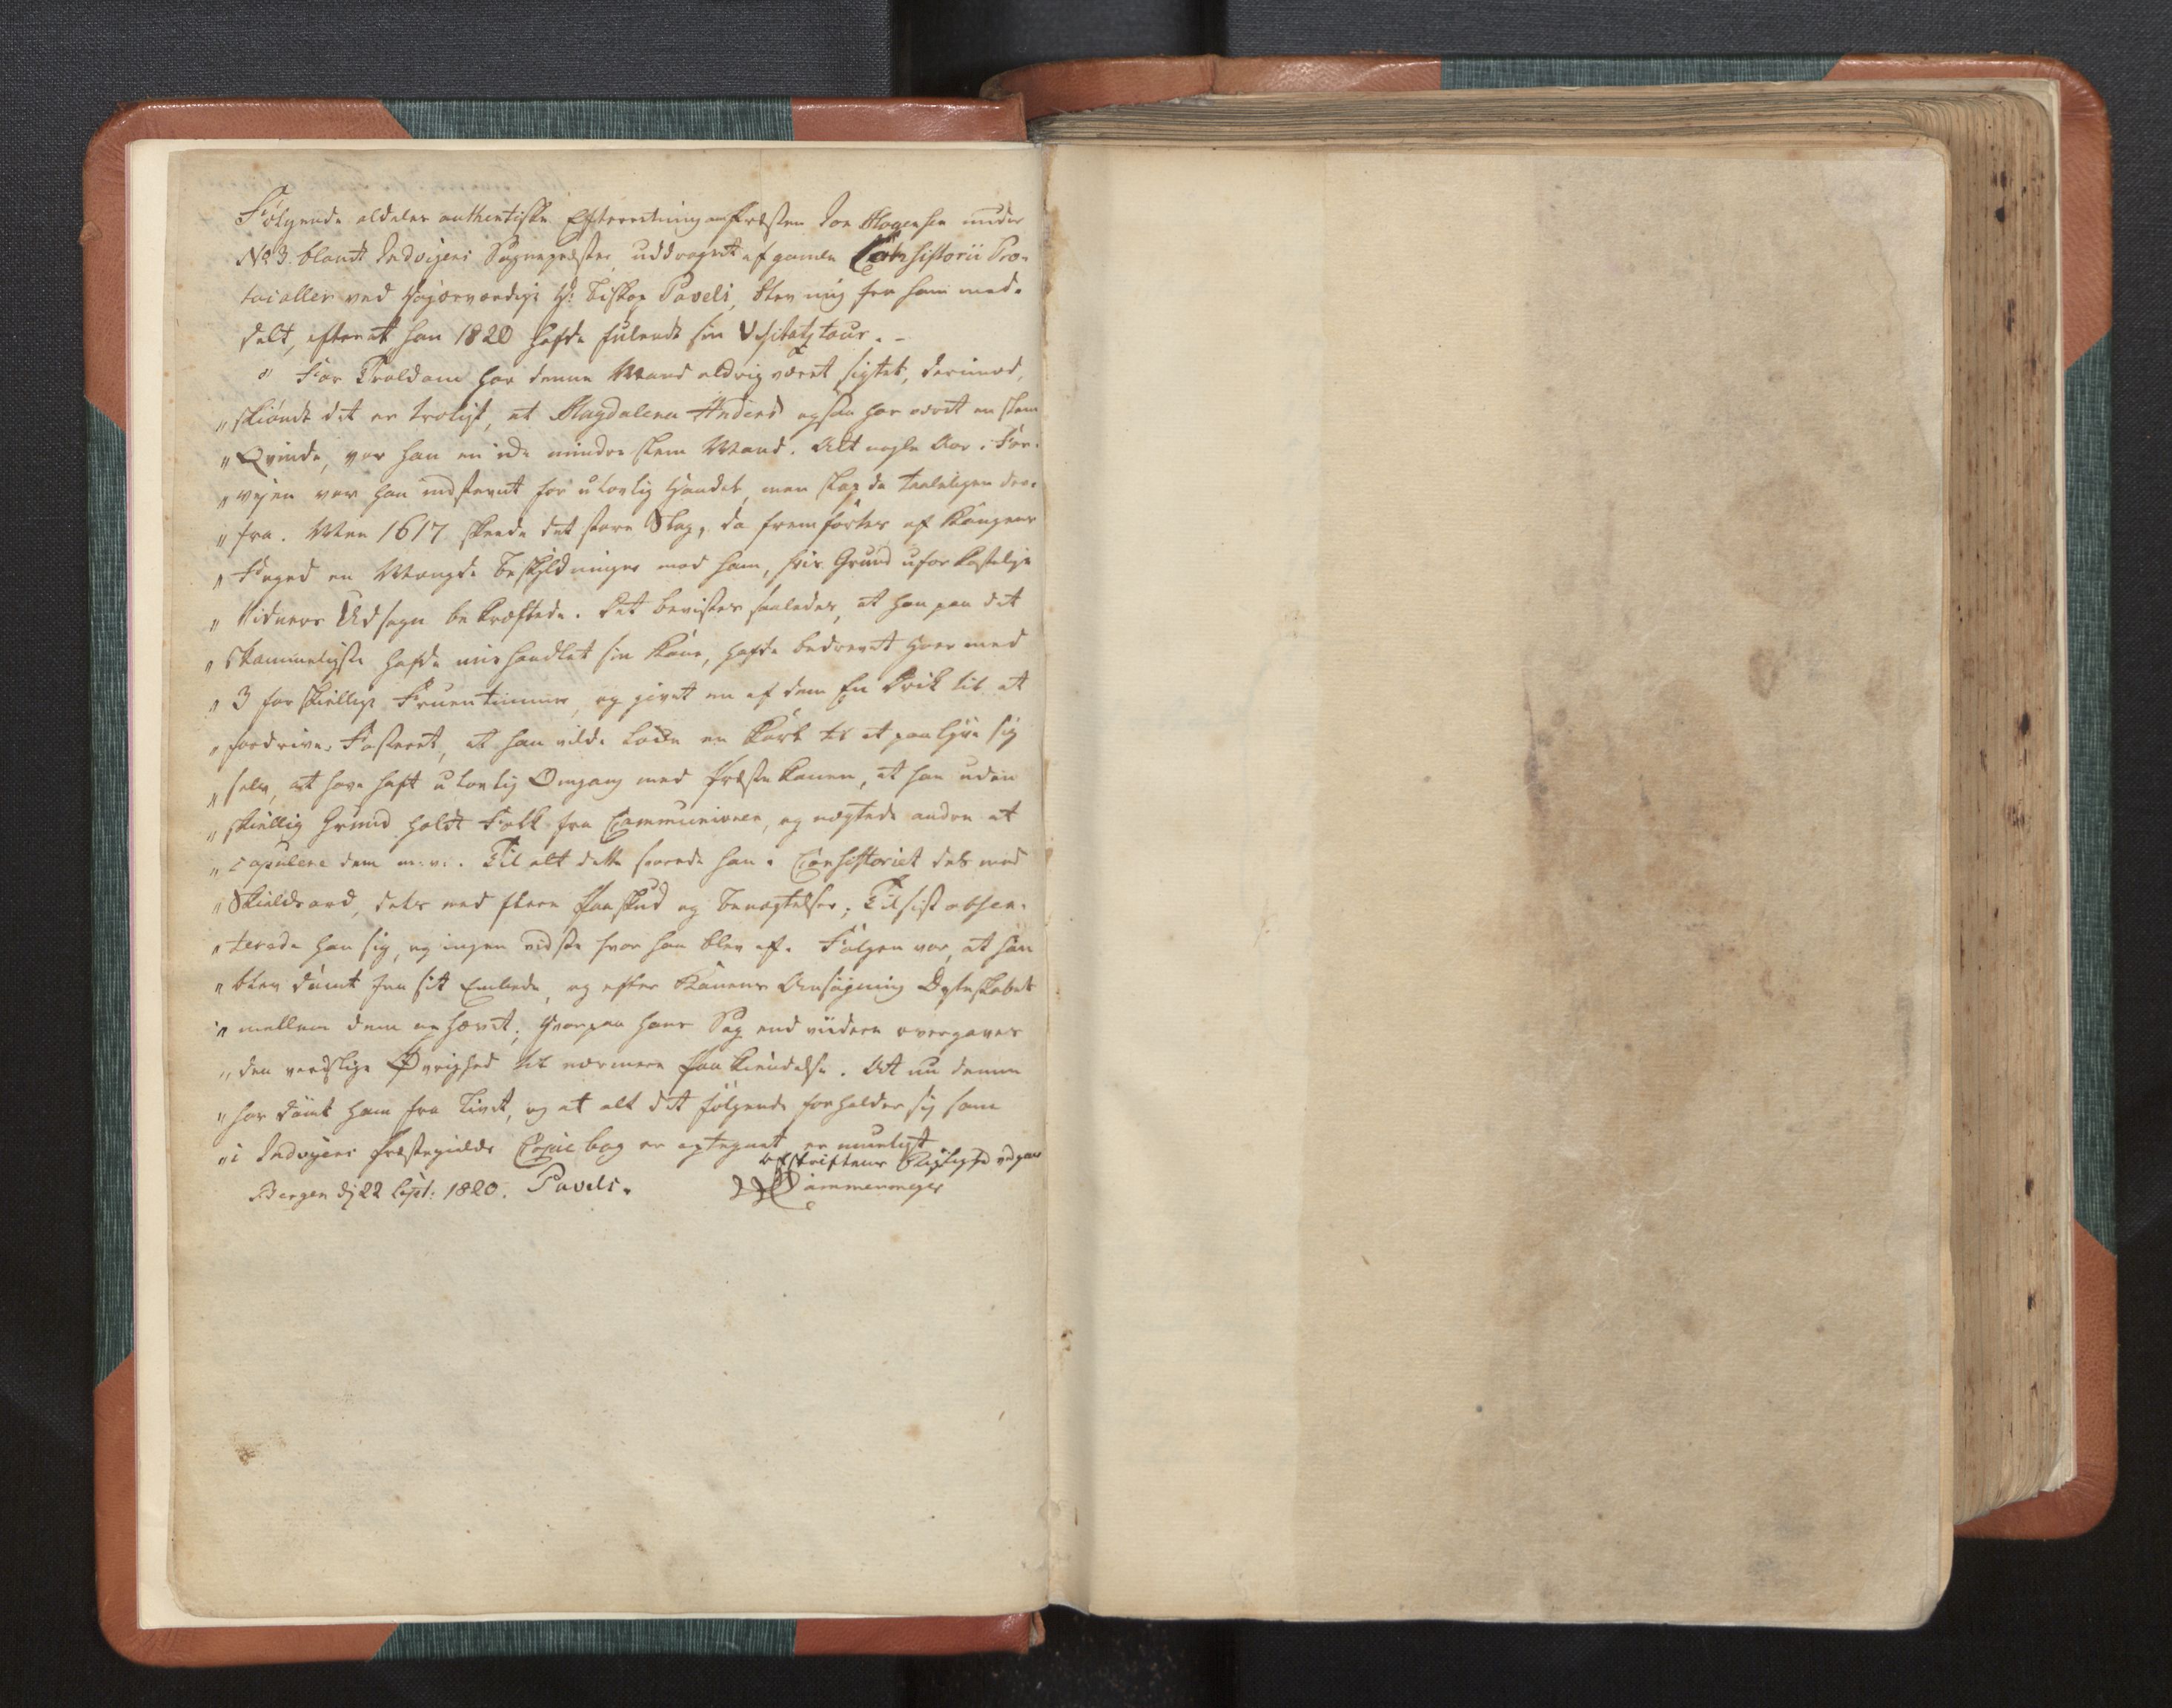 Følgende aldeles authentiske Efterretning om Præsten Jon Mogensen under
No 3. blandt Indvigens Sognepræster, uddraget af gamle Consistorii Pro-
tocoller ved Højærværdige Hr. Biskop Pavels, blev mig fra ham med-
delt, efterat han 1820 hafde fulendt sin Visitatztour. –
" For Troldom har denne Mand aldrig været sigtet, derimod,
" skiöndt det er troligt, at Magdalena Anders ogsaa har været en slem
" Qvinde, var han en ikke mindre slem Mand. Alt nogle Aar i For-
" vejen var han indstevnt for ulovlig Handel, men slap da taaleligen der-
" fra. Men 1617 skeede det store Slag, da fremförtes af Kongens
" Foged en Mængde Beskyldninger mod ham, hvis Grund uforkastelige
" Vidners Udsagn bekræftede. Det bevistes saaledes, at han paa det
" skammeligste hafde mishandlet sin Kone, hafde bedrevet Hoer med
" 3 forskiellige Fruentimmer, og givet en af dem En Drik til at
" fordrive Fosteret, at han vilde leie en Karl til at paalyve sig
" selv, at have haft ulovlig Omgang med Præstekonen, at han uden
" skiellig Grund holdt Folk fra Communionen, og nægtede andre at
" copulere dem m: v: . Til alt dette svarede han i Consistoriet dels med
" Skieldsord, dels med flere Paaskud og Benægtelser; Tilsist absen-
" terede han sig, og ingen vidste hvor han blev af. Følgen var, at han
" blev dömt fra sit Embede, og efter Konens Ansögning Ægteskabet
" mellem dem ophævet; hvorpaa hans Sag end viidere overgaves
" den verdslige Øvrighed til nærmere Paakiendelse. At nu denne
" har dömt ham fra Livet, og at alt det følgende forholder sig som
" i Indvigens Præstegields Copie bog er optegnet er mueligt
Bergen dj 22 Sept: 1820. Pavels.
Afskriftens Rigtighed vedgaar
Dammenmeyer